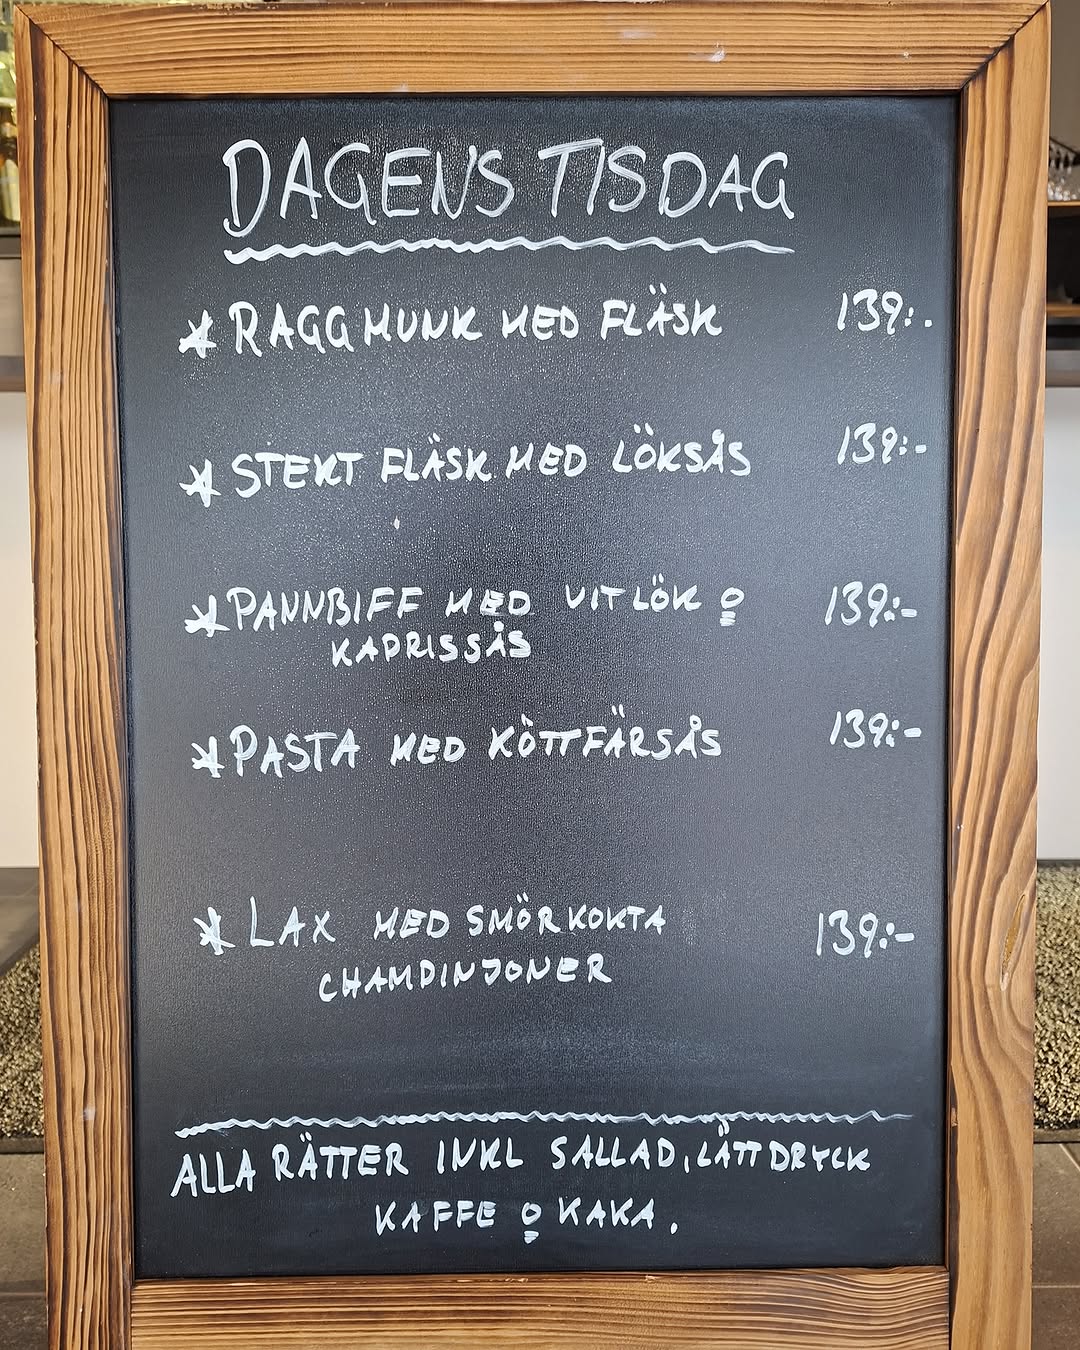 DAGENS TISDAG
* RAGGMUNK MED FLÄSK 139:-
* STEKT FLÄSK MED LÖKSÅS 139:-
* PANNBIFF MED VITLÖK o 139:-
KAPRISSÅS
* PASTA MED KÖTTFÄRSÅS 139:-
* LAX MED SMÖRKOKTA 139:-
CHAMPINJONER
ALLA RÄTTER INKL SALLAD, LÄTTDRYCK
KAFFE o KAKA.